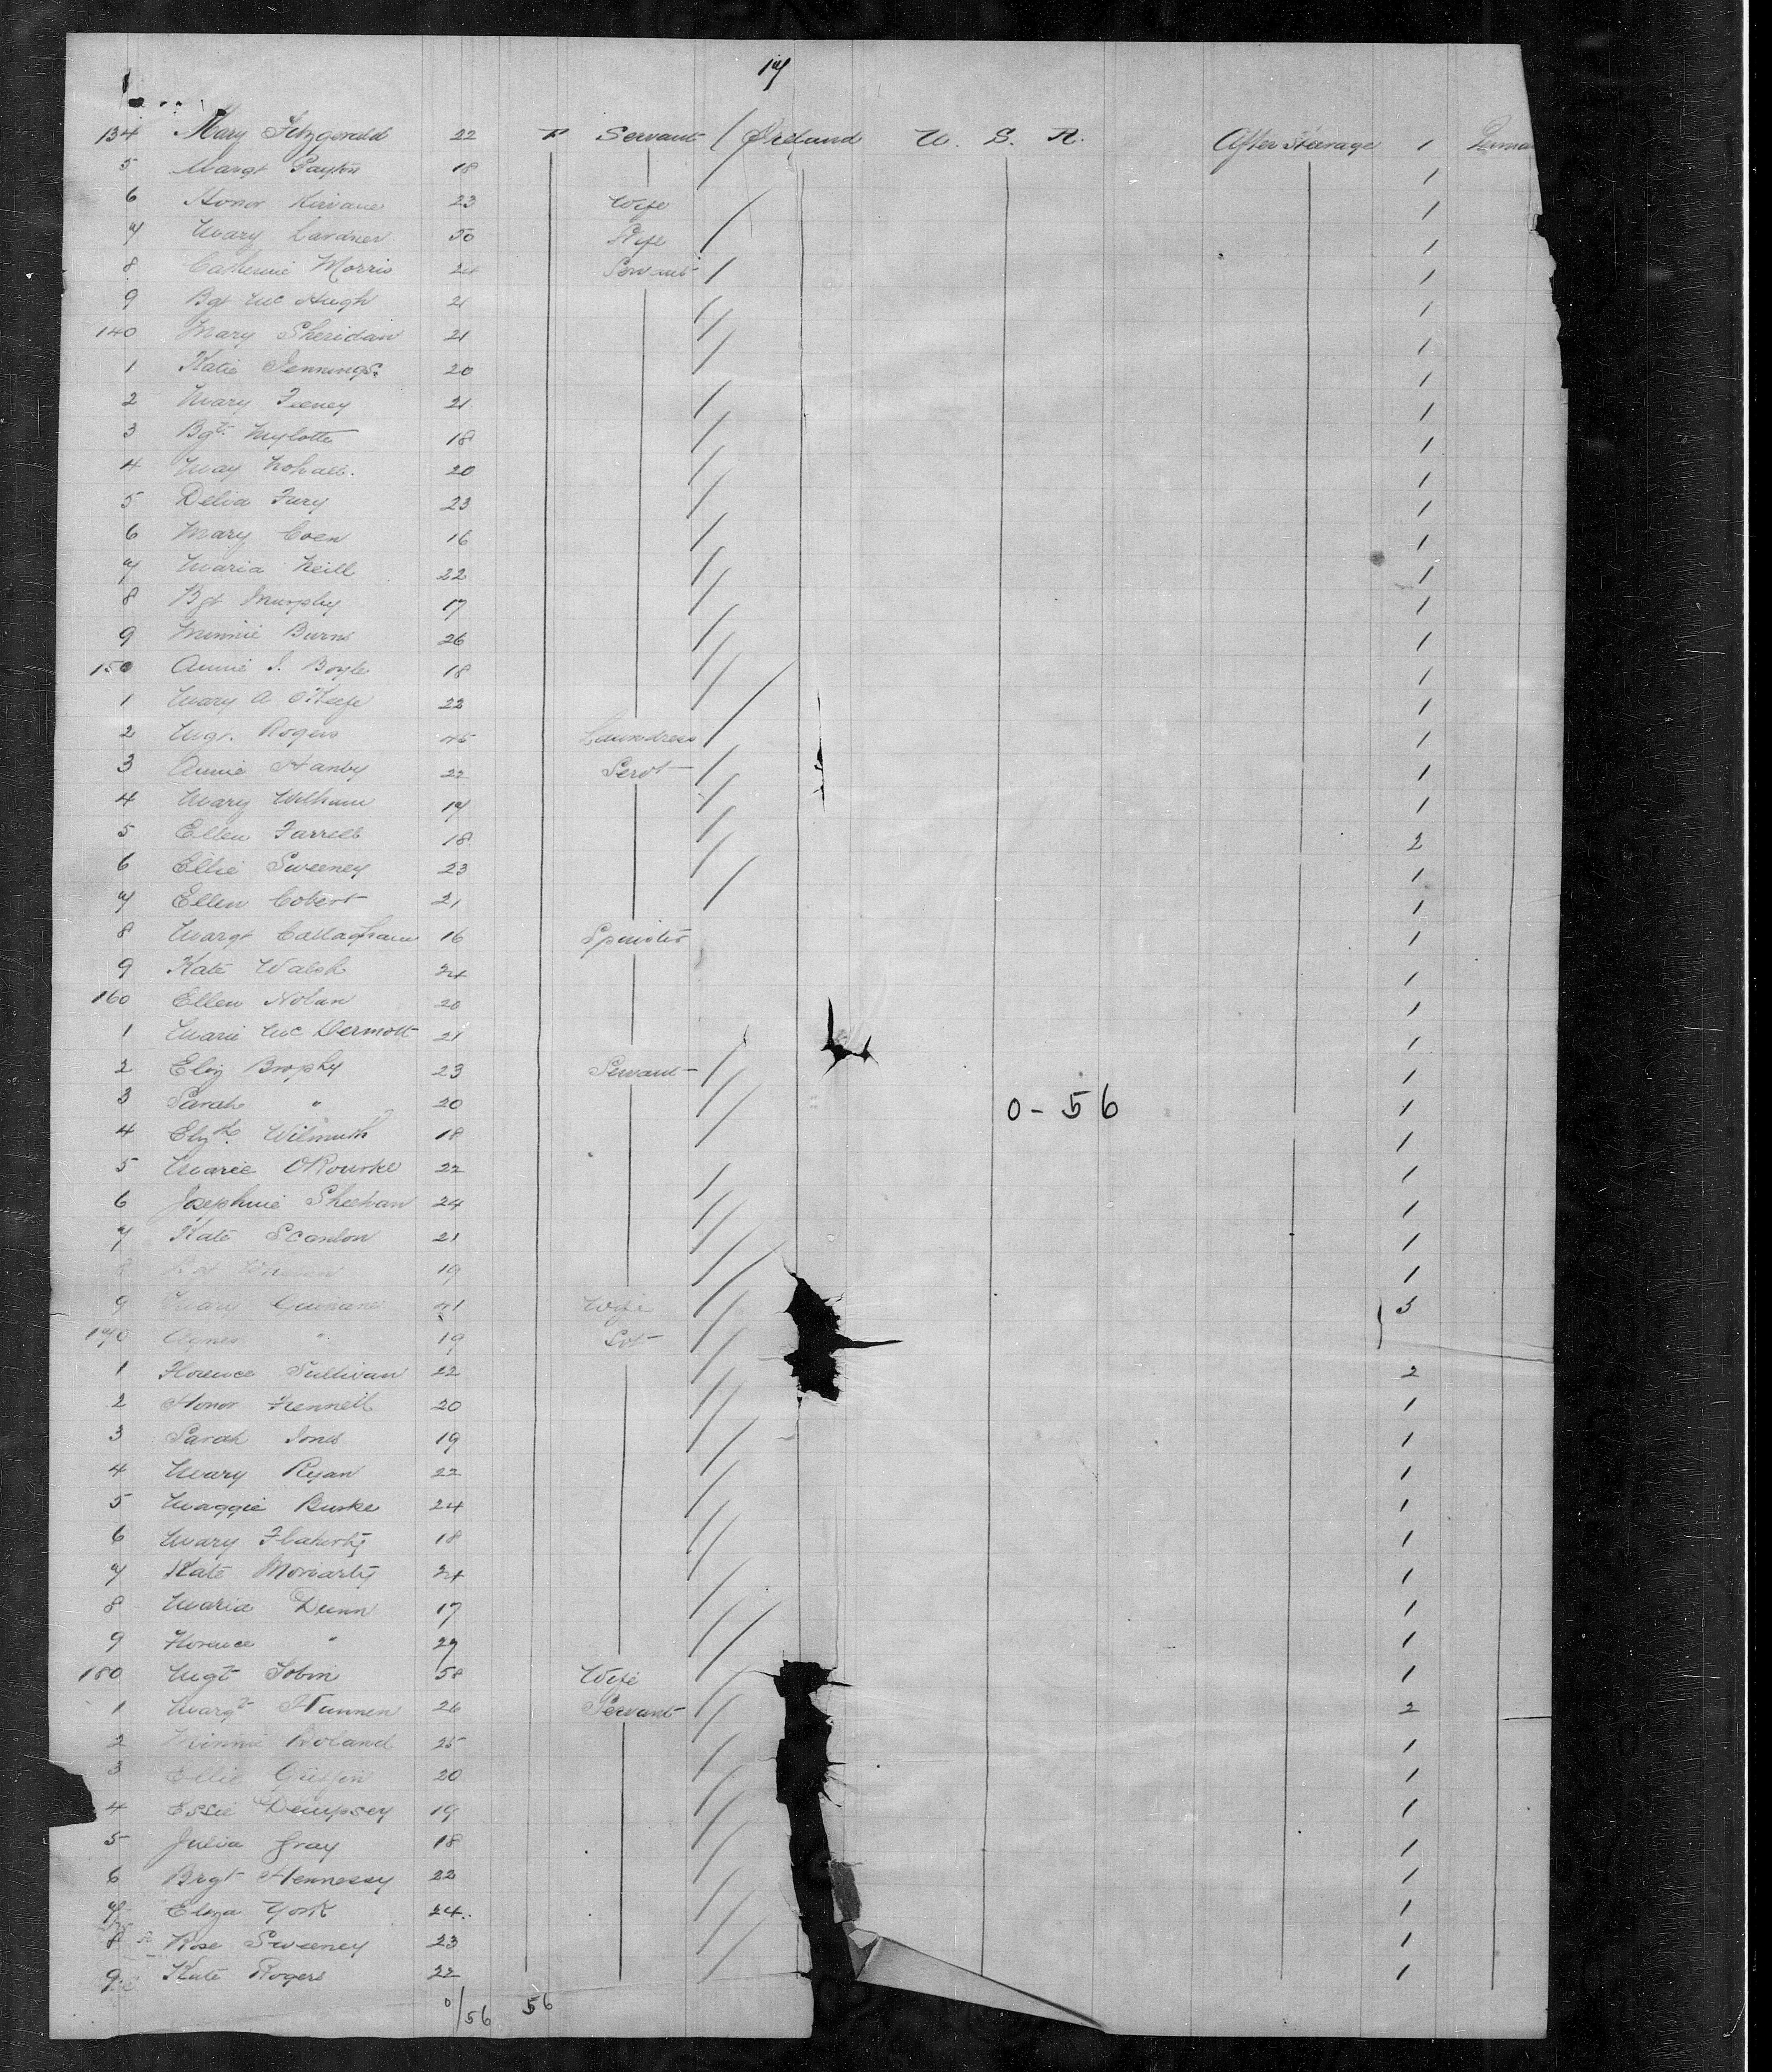 17
134 Mary Fitzgerald 22 F Servant / Ireland U. S. A. After Steerage 1
5 Margt Payton 18 1
6 Honor Kirvane 23 Wife 1
7 Mary Lardner 50 Wife 1
8 Catherine Morris 24 Servant 1
9 Bgt McHugh 21 1
140 Mary Sheridan 21 1
1 Katie Jennings 20 1
2 Mary Feeney 21 1
3 Bgt Mylotte 18 1
4 May 20 1
5 Delia Fury 23 1
6 Mary Coen 16 1
7 Maria Neill 22 1
8 Bgt Murphy 17 1
9 Minnie Burns 26 1
150 Annie J. Boyle 18 1
1 Mary A O'Keefe 22 1
2 Mgt. Rogers 45 Laundress 1
3 Annie Hanby 22 Servt 1
4 Mary 17 1
5 Ellen Farrell 18 2
6 Ellie Sweeney 23 1
7 Ellen Cobert 21 1
8 Margt Callaghan 16 Spinster 1
9 Kate Walsh 24 1
160 Ellen Nolan 20 1
1 Marie McDermott 21 1
2 Eliz Brophy 23 Servant 1
3 Sarah " 20 1
0 - 56
4 Elizth Wilmuth 18 1
5 Marie ORourke 22 1
6 Josephine Sheehan 24 1
7 Kate Scanlon 21 1
8 19 1
9 Mary Guinane 41 Wife 3
170 Agnes " 19 Svt
1 Florence Sullivan 22 2
2 Honor Fennell 20 1
3 Sarah Jones 19 1
4 Mary Ryan 22 1
5 Maggie Burke 24 1
6 Mary Flaherty 18 1
7 Kate Moriarty 24 1
8 Maria Dunn 17 1
9 Florence " 27 1
180 Mgt Tobin 58 Wife 1
1 Margt 26 Servant 2
2 Minnie Boland 25 1
3 Ellie Griffin 20 1
4 Essie Dempsey 19 1
5 Julia Gray 18 1
6 Brgt Hennessy 22 1
7 Eliza York 24 1
8 Rose Sweeney 23 1
9 Kate Rogers 22 1
0/56 56